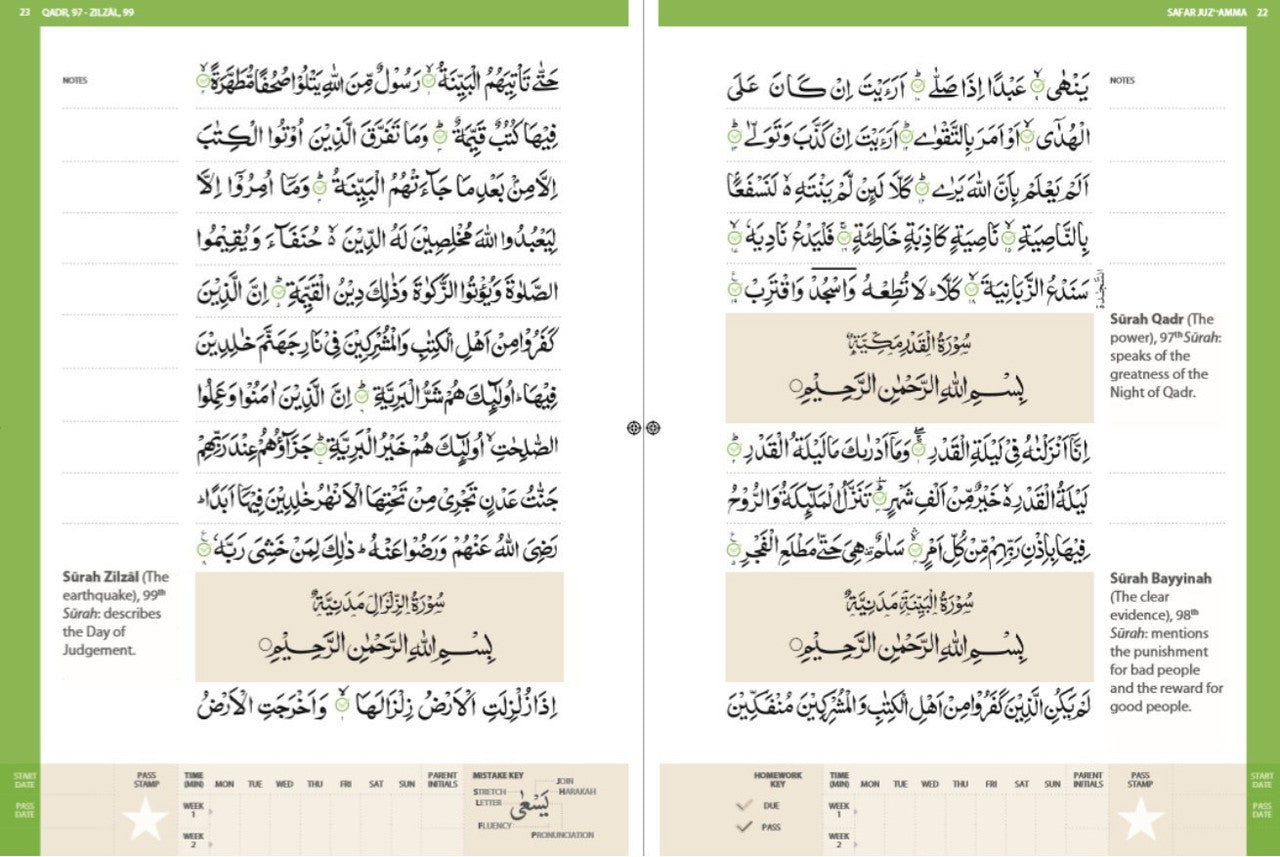 SAFAR JUZ' 'AMMA 22
NOTES
يَنْهٰى ۙ عَبْدًا اِذَا صَلّٰى ؕ اَرَءَيْتَ اِنْ كَانَ عَلَى
الْهُدٰٓى ۙ اَوْ اَمَرَ بِالتَّقْوٰى ؕ اَرَءَيْتَ اِنْ كَذَّبَ وَتَوَلّٰى ؕ
اَلَمْ يَعْلَمْ بِاَنَّ اللّٰهَ يَرٰى ؕ كَلَّا لَئِنْ لَّمْ يَنْتَهِ ۙ لَنَسْفَعًۢا
بِالنَّاصِيَةِ ۙ نَاصِيَةٍ كَاذِبَةٍ خَاطِئَةٍ ۚ فَلْيَدْعُ نَادِيَهٗ ۙ
سَنَدْعُ الزَّبَانِيَةَ ۙ كَلَّا ؕ لَا تُطِعْهُ وَاسْجُدْ وَاقْتَرِبْ ۩
السَّجْدَة
سُوْرَةُ الْقَدْرِ مَكِّيَّةٌ
بِسْمِ اللّٰهِ الرَّحْمٰنِ الرَّحِيْمِ
Sūrah Qadr (The
power), 97th Sūrah:
speaks of the
greatness of the
Night of Qadr.
اِنَّآ اَنْزَلْنٰهُ فِيْ لَيْلَةِ الْقَدْرِ ۚ وَمَآ اَدْرٰىكَ مَا لَيْلَةُ الْقَدْرِ ؕ
لَيْلَةُ الْقَدْرِ ۙ خَيْرٌ مِّنْ اَلْفِ شَهْرٍ ؕ تَنَزَّلُ الْمَلٰٓئِكَةُ وَالرُّوْحُ
فِيْهَا بِاِذْنِ رَبِّهِمْ مِّنْ كُلِّ اَمْرٍ ۙ سَلٰمٌ ۛ هِيَ حَتّٰى مَطْلَعِ الْفَجْرِ
سُوْرَةُ الْبَيِّنَةِ مَدَنِيَّةٌ
بِسْمِ اللّٰهِ الرَّحْمٰنِ الرَّحِيْمِ
Sūrah Bayyinah
(The clear
evidence), 98th
Sūrah: mentions
the punishment
for bad people
and the reward for
good people.
لَمْ يَكُنِ الَّذِيْنَ كَفَرُوْا مِنْ اَهْلِ الْكِتٰبِ وَالْمُشْرِكِيْنَ مُنْفَكِّيْنَ
HOMEWORK KEY
DUE
PASS
TIME (MIN) MON TUE WED THU FRI SAT SUN PARENT INITIALS PASS STAMP
WEEK 1
WEEK 2
START DATE
PASS DATE
23 QADR, 97 - ZILZĀL, 99
NOTES
حَتّٰى تَأْتِيَهُمُ الْبَيِّنَةُ ۙ رَسُوْلٌ مِّنَ اللّٰهِ يَتْلُوْا صُحُفًا مُّطَهَّرَةً ۙ
فِيْهَا كُتُبٌ قَيِّمَةٌ ؕ وَمَا تَفَرَّقَ الَّذِيْنَ اُوْتُوا الْكِتٰبَ
اِلَّا مِنْۢ بَعْدِ مَا جَآءَتْهُمُ الْبَيِّنَةُ ؕ وَمَآ اُمِرُوْٓا اِلَّا
لِيَعْبُدُوا اللّٰهَ مُخْلِصِيْنَ لَهُ الدِّيْنَ ۙ حُنَفَآءَ وَيُقِيْمُوا
الصَّلٰوةَ وَيُؤْتُوا الزَّكٰوةَ وَذٰلِكَ دِيْنُ الْقَيِّمَةِ ؕ اِنَّ الَّذِيْنَ
كَفَرُوْا مِنْ اَهْلِ الْكِتٰبِ وَالْمُشْرِكِيْنَ فِيْ نَارِ جَهَنَّمَ خٰلِدِيْنَ
فِيْهَا ؕ اُولٰٓئِكَ هُمْ شَرُّ الْبَرِيَّةِ ؕ اِنَّ الَّذِيْنَ اٰمَنُوْا وَعَمِلُوا
الصّٰلِحٰتِ ۙ اُولٰٓئِكَ هُمْ خَيْرُ الْبَرِيَّةِ ؕ جَزَآؤُهُمْ عِنْدَ رَبِّهِمْ
جَنّٰتُ عَدْنٍ تَجْرِيْ مِنْ تَحْتِهَا الْاَنْهٰرُ خٰلِدِيْنَ فِيْهَآ اَبَدًا ؕ
رَضِيَ اللّٰهُ عَنْهُمْ وَرَضُوْا عَنْهُ ؕ ذٰلِكَ لِمَنْ خَشِيَ رَبَّهٗ
سُوْرَةُ الزِّلْزَالِ مَدَنِيَّةٌ
بِسْمِ اللّٰهِ الرَّحْمٰنِ الرَّحِيْمِ
Sūrah Zilzāl (The
earthquake), 99th
Sūrah: describes
the Day of
Judgement.
اِذَا زُلْزِلَتِ الْاَرْضُ زِلْزَالَهَا ۙ وَاَخْرَجَتِ الْاَرْضُ
START DATE
PASS DATE
PASS STAMP TIME (MIN) MON TUE WED THU FRI SAT SUN PARENT INITIALS
WEEK 1
WEEK 2
MISTAKE KEY
JOIN
STRETCH HARAKAH
LETTER
يَسْعٰى
FLUENCY
PRONUNCIATION